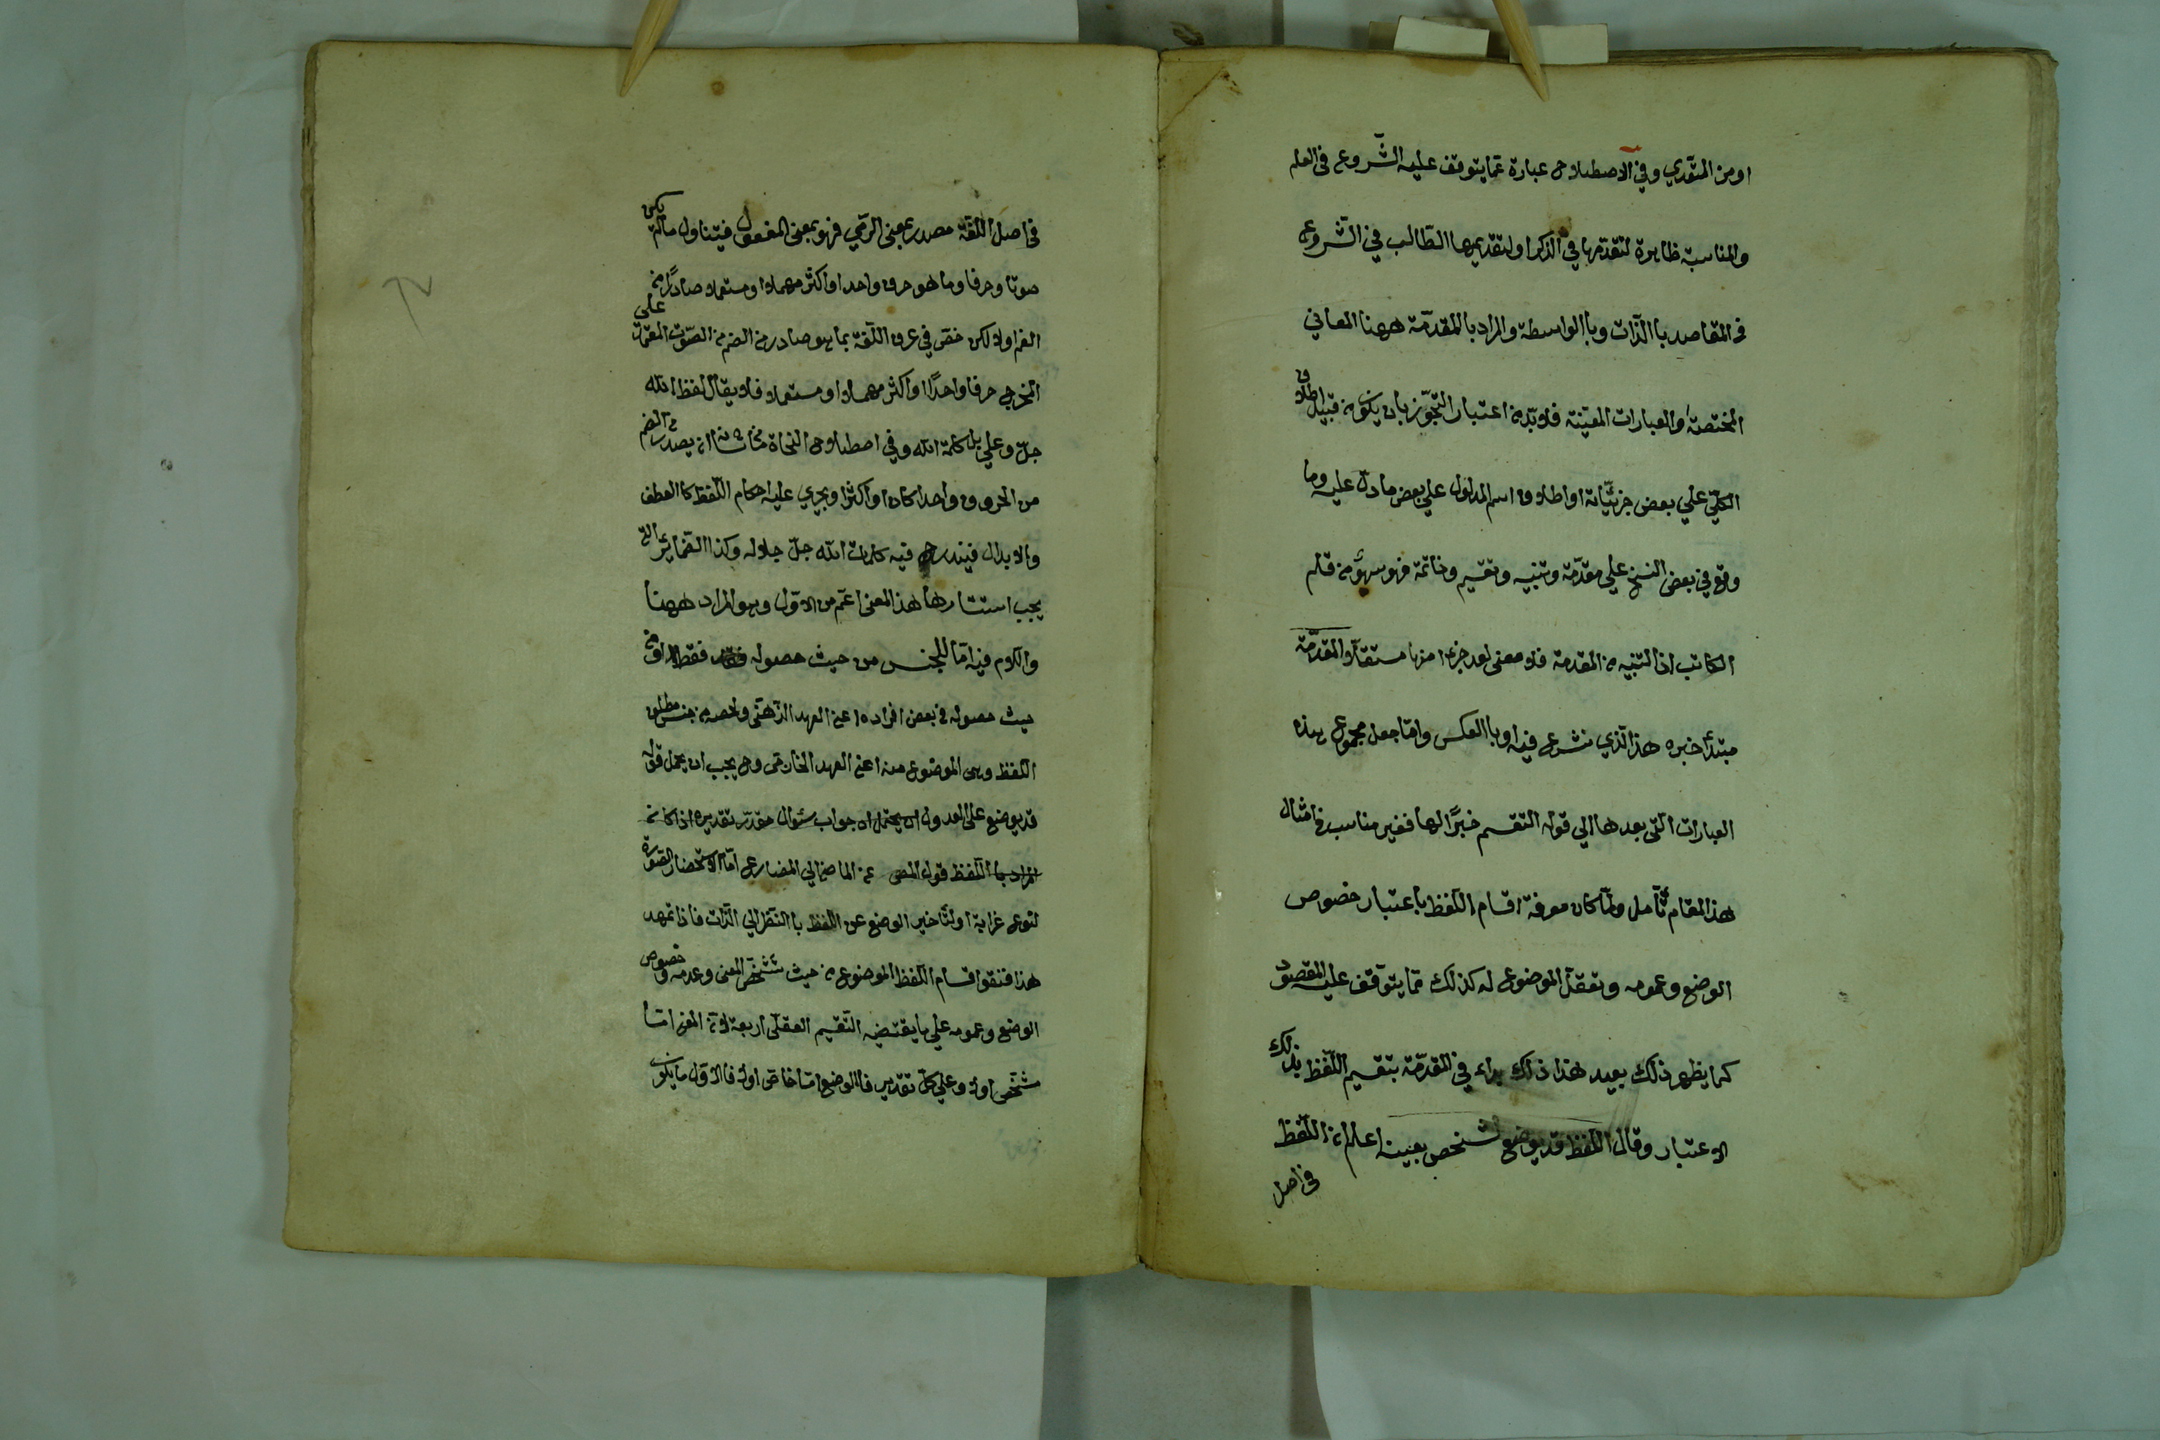 او من المتعدي وفي الاصطلاح عبارة عمّا يتوقف عليه الشّروع في العلم
والمناسبة ظاهرة لتقدّمها في الذكر او لتقديمها الطالب في الشروع
في المقاصد باالذّات وباالواسطة والمراد باالمقدّمة ههنا المعاني
المختصة والعبارات المعيّنة فلا بدّ من اعتبار التجوّز بان يكون من قبيل اطلاق
الكلّي علي بعض جزئيّاته او اطلاق اسم المدلول علي بعض ما دلّ عليه وما
وقع في بعض النسخ علي مقدّمة وتنبيه وتقسيم وخاتمة فهو سهو من قلم
الكاتب اذا التنبيه من المقدمة فلا معنى لعد جزء منها مستقلّا والمقدّمة
مبتدأ خبره هذا الّذي نشرع فيه او باالعكس وامّا جعل مجموع هذه
العبارات الّتي بعدها الي قوله التقسيم خبرًا لها فغير مناسب في امثال
هذا المقام تأمل ولمّا كان معرفة اقسام اللّفظ باعتبار خصوص
الوضع وعمومه وتعقّل الموضوع له كذلك ممّا يتوقّف عليه المقصود
كما يظهر ذلك بعيد هذا ذلك بداء في المقدّمة بتقسيم اللّفظ بذلك
الاعتبار وقال اللفظ قد يوضع لشخص بعينه اعلم ان اللّفظ
في اصل
في اصل اللّغة مصدر بمعنى الرّمي فهو بمعنى المفعول فيتناول ما لم يكن
صوتا وحرفا وما هو حرف واحد او اكثر مهملا او مستعملا صادرًا من
الفم او لا لكن خصّ في عرف اللّغة بما هو صادر من الفم من الصّوت المعتمد على
المخرج حرفا واحدًا او اكثر مهملا او مستعملا فلا يقال لفظ الله
جلّ وعلي بل كلمة الله وفي اصطلاح النحاة ما من شانه ان يصدر من الفم
من الحروف واحدا كان او اكثر او يجري عليه احكام اللّفظ كاالعطف
والابدال فيندرج فيه كلمات الله جلّ جلاله وكذا الضّمائر الّتي
يجب استتارها هذا المعنى اعمّ من الاوّل وهو المراد ههنا
واللام فيه امّا للجنس من حيث حصوله فقط او من
حيث حصوله في بعض افراده اعني العهد الذّهنّي ولحصه من جنس مطلق
اللّفظ وهى الموضوع منه اعني العهد الخارجّى وح يجب ان يحمل قوله
قد يوضع على العدول ان يحتمل ان جواب سئوال مقدّر تقديره اذا كانه
المراد باللّفظ قول المصّ عن الماضي الي المضارع امّا لاستحضار الصّورة
لنوع غرابة او لتأخير الوضع عن اللّفظ باالنّظر الي الذّات فاذا تمهد
هذا فنقو اقسام اللّفظ الموضوع من حيث تشخّص المعنى وعدمه وخصوص
الوضع وعمومه علي ما يقتضيه التّقسيم العقلّي اربعة لانّ المعنى امّا
مشخّص اولا وعلي كلّ تقدير فاالوضع امّا خاصّ اولا فالاوّل ما يكون